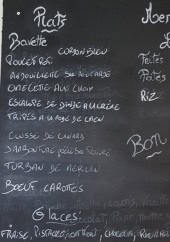 Plats
Bavette
CORDON BLEU
POULET ROTI
ANDOUILLETTE SCE MOUTARDE
OMELETTE AUX CHOIX
ESCALOPE DE DINDE A LA CRÈME
TRIPES A LA MODE DE CAEN
CUISSE DE CANARD
TURBAN DE MERLU
BOEUF CAROTTES
Glaces:
FRAISE, PISTACHE, CITRON, CHOCOLAT,
Pâtes
Riz
Bon